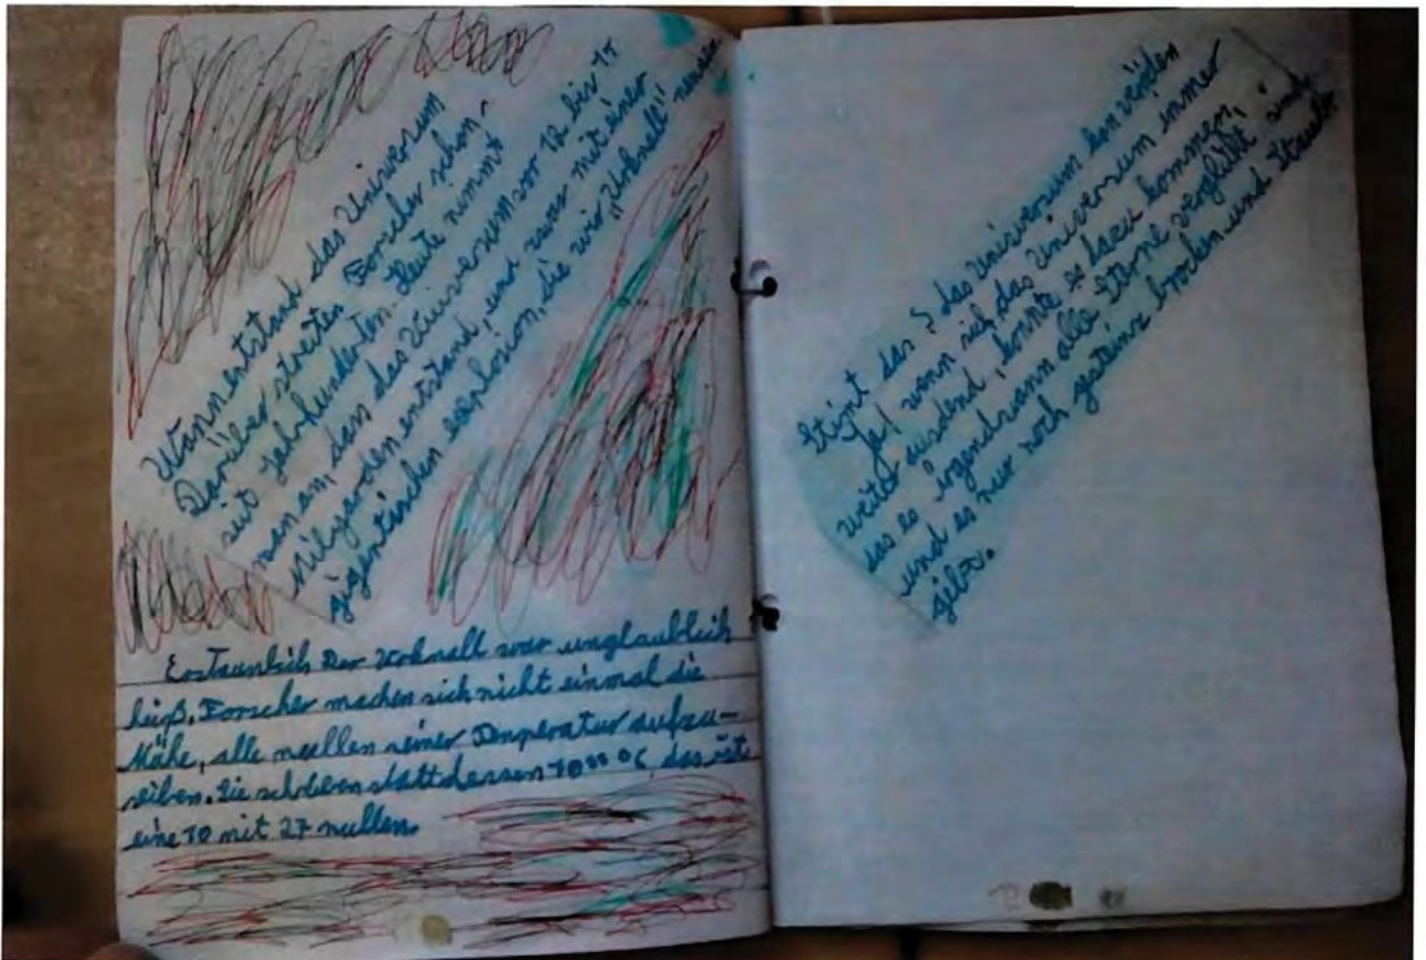 Wann entstand das Universum
Darüber streiten Forscher schon
seit jahrhunderten. Heute nimmt
man an, dass das Universum vor 12 bis 15
Milyarden entstand, und zwar mit einer
gigentischen explosion, die wir „Urknall" nennen
Erstaunlich Der Urknall war unglaublich
heiß. Forscher machen sich nicht einmal die
Mühe, alle nullen seiner Temperatur aufzu-
seiben. Sie schrieben statt dessen °C das ist
eine 10 mit 27 nullen.
Stimt das? das Universum
Ja! wenn sich das Universum immer
weiter ausdend, konnte es dazu kommen,
das es irgendwann alle Sterne verglüht sind
und es nur noch gesteinz brocken und Staub
gibt.